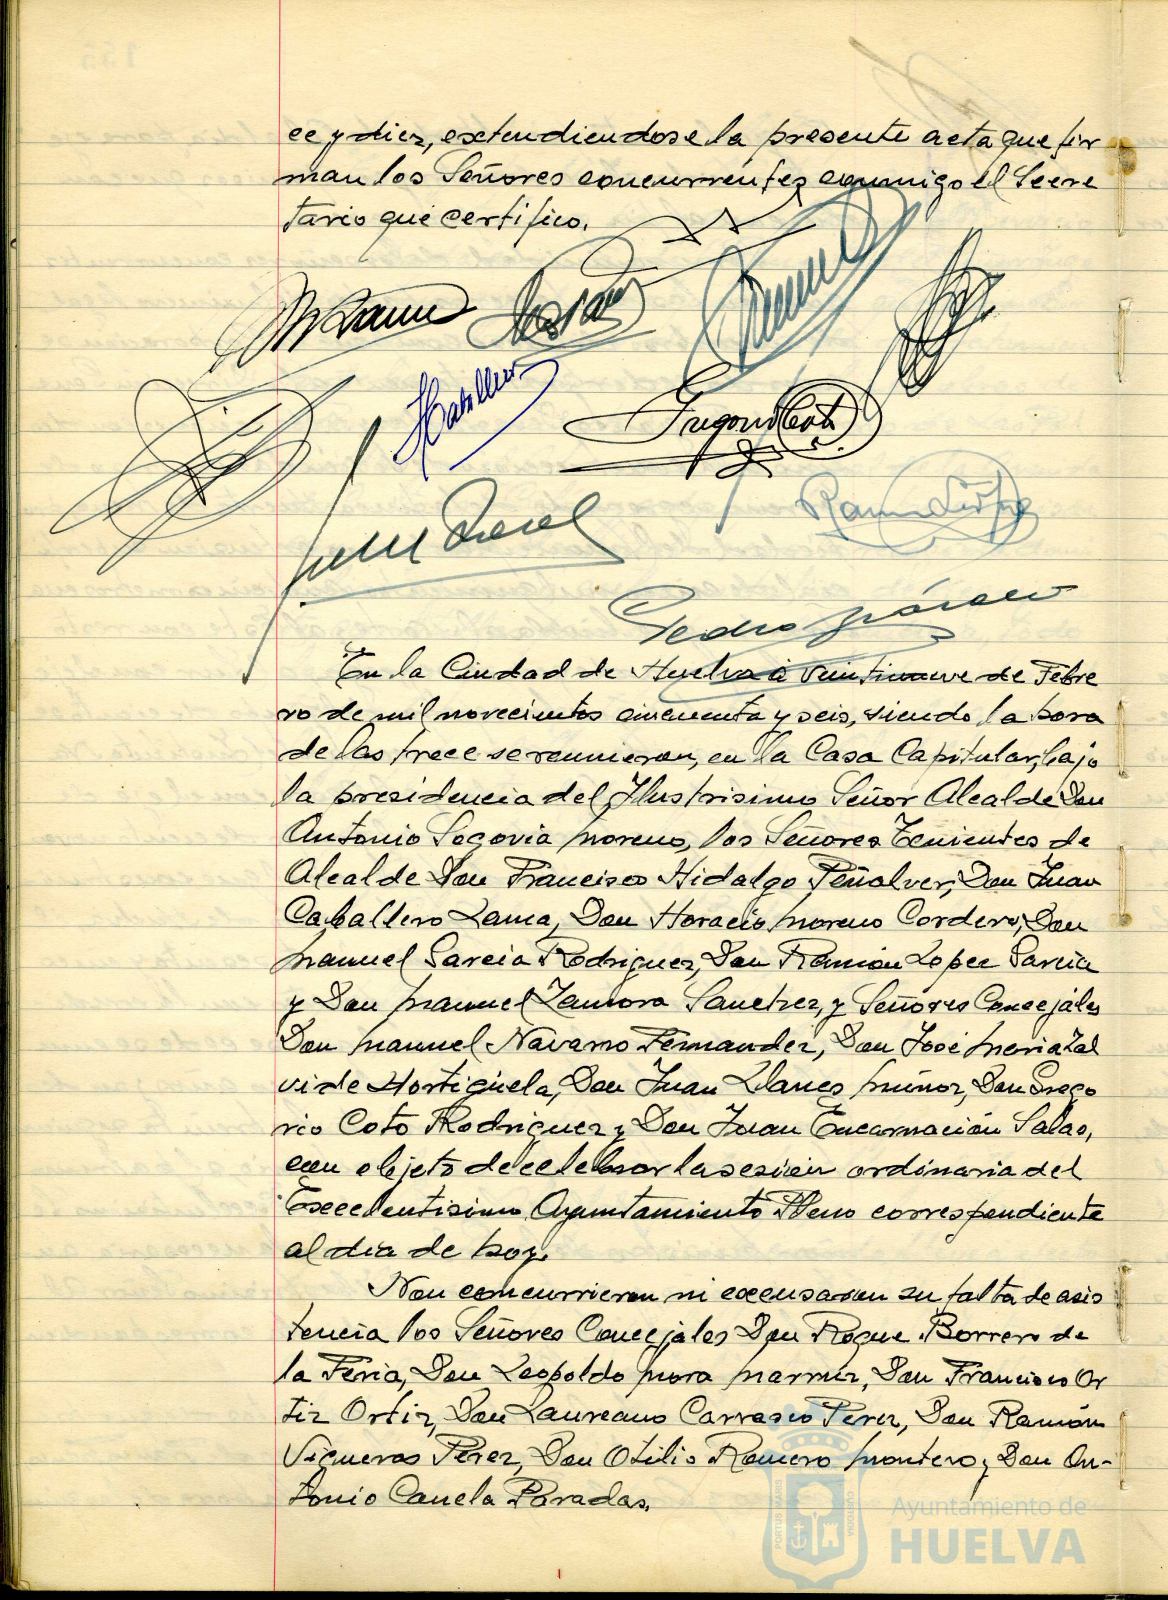 ce y diez, extendiendose la presente acta que fir
man los Señores concurrentes conmigo el Secre
tario que certifico.
Gregorio Coto
Pedro
En la Ciudad de Huelva a veintinueve de Febre
ro de mil novecientos cincuenta y seis, siendo la hora
de las trece se reunieron, en la Casa Capitular, bajo
la presidencia del Ilustrisimo Señor Alcalde Don
Antonio Segovia Moreno, los Señores Tenientes de
Alcalde Don Francisco Hidalgo Peñalver, Don Juan
Caballero Lama, Don Horacio Moreno Cordero, Don
Manuel Garcia Rodriguez, Don Ramon Lopez Garcia
y Don Manuel Zamora Sanchez, y Señores Concejales
Don Manuel Navarro Fernandez, Don José Maria Zal
vide Hortigüela, Don Juan Llanes Muñoz, Don Grego
rio Coto Rodriguez y Don Juan Encarnación Salas,
con objeto de celebrar la sesión ordinaria del
Excelentisimo Ayuntamiento Pleno correspondiente
al dia de hoy.
Non concurrieron ni excusaron su falta de asis
tencia los Señores Concejales Don Roque Borrero de
la Feria, Don Leopoldo Mora Don Francisco Or
tiz Ortiz, Don Laureano Carrasco Perez, Don Ramón
Vigueras Perez, Don Otilio Romero Montero y Don An-
tonio Canela Paradas.
Ayuntamiento de
HUELVA